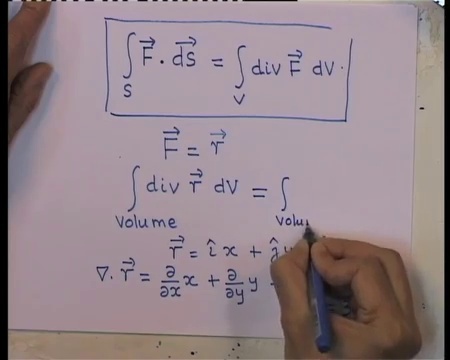 ∫_S F⃗ · ds⃗ = ∫_V div F⃗ dV.
F⃗ = r⃗
∫_volume div r⃗ dV = ∫_volu
r⃗ = î x + ĵ y
∇. r⃗ = ∂/∂x x + ∂/∂y y +